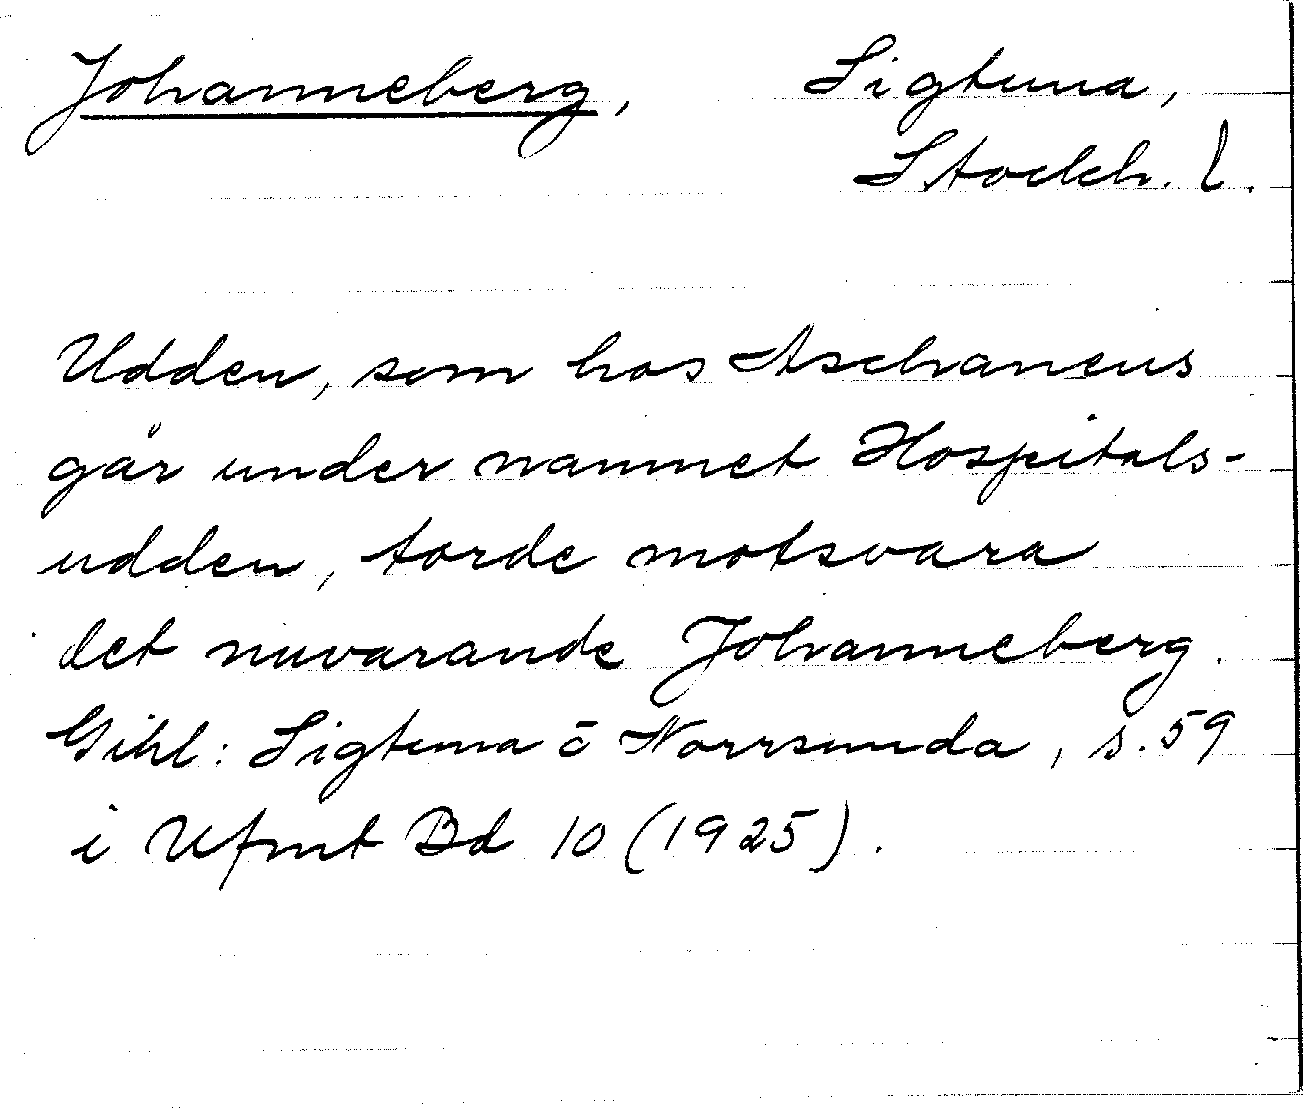 Johanneberg, Sigtuna,
Stockh. l.
Udden, som hos Aschaneus
går under namnet Hospitals-
udden, torde motsvara
det nuvarande Johanneberg.
Gihl: Sigtuna o Norrsunda, s. 59
i Ufmt Bd 10 (1925).